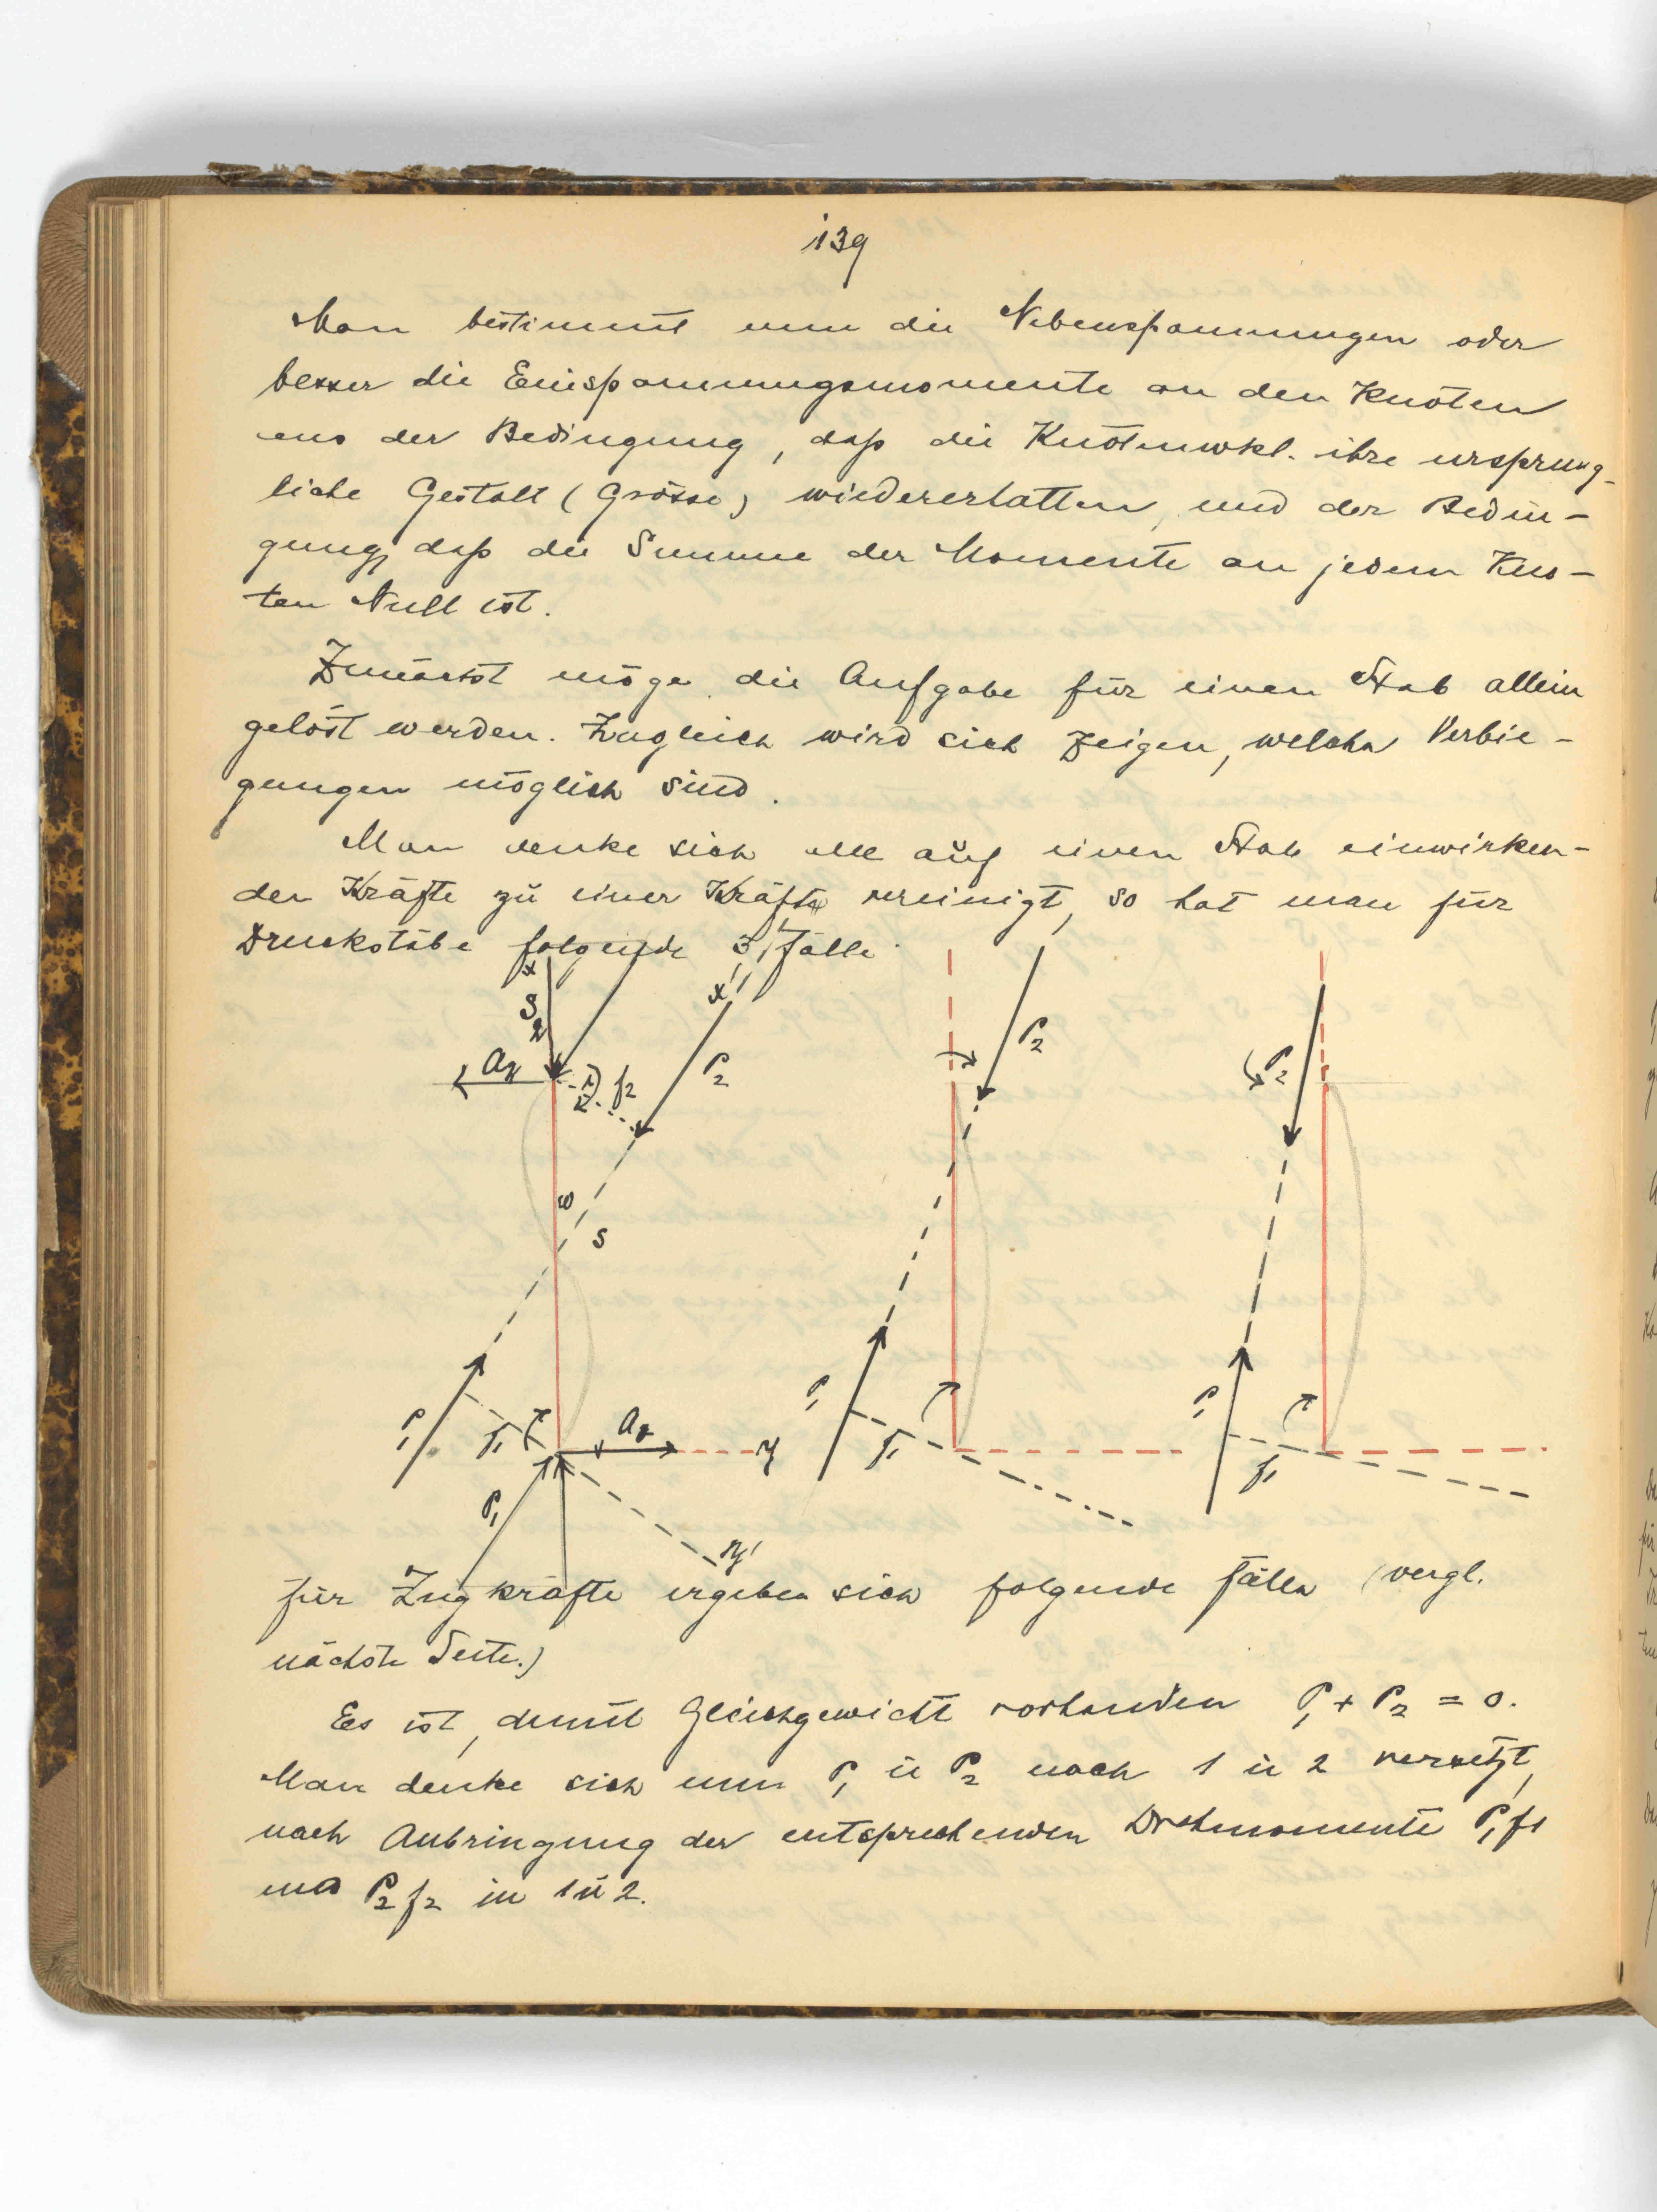 139
Man bestimmt nun die Nebenspannungen oder
besser die Einspannungsmomente an den Knoten
aus der Bedingung, daß die Knotenwkl. ihre ursprüng-
liche Gestalt (Grösse) wiedererhalten, und der Bedin-
gung, daß die Summe der Momente an jedem Kno-
ten Null ist.
Zunächst möge die Aufgabe für einen Stab allein
gelöst werden. Zugleich wird sich zeigen, welche Verbie-
gungen möglich sind.
Man denke sich alle auf einen Stab einwirken-
den Kräfte zu einer Kräfte vereinigt, so hat man für
Druckstäbe folgende 3 Fälle
x
S
2
x'
P2
P2
P2
f2
ω
S
P1
f1
y
P1
f1
P1
f1
P1
y'
für Zugkräfte ergeben sich folgende Fälle (vergl.
nächste Seite.)
Es ist, damit Gleichgewicht vorhanden P1 + P2 = 0.
Man denke sich nun P1 ü P2 nach 1 ü 2 versetzt,
nach Anbringung der entsprechenden Drehmomente P1f1
und P2f2 in 1 ü 2.